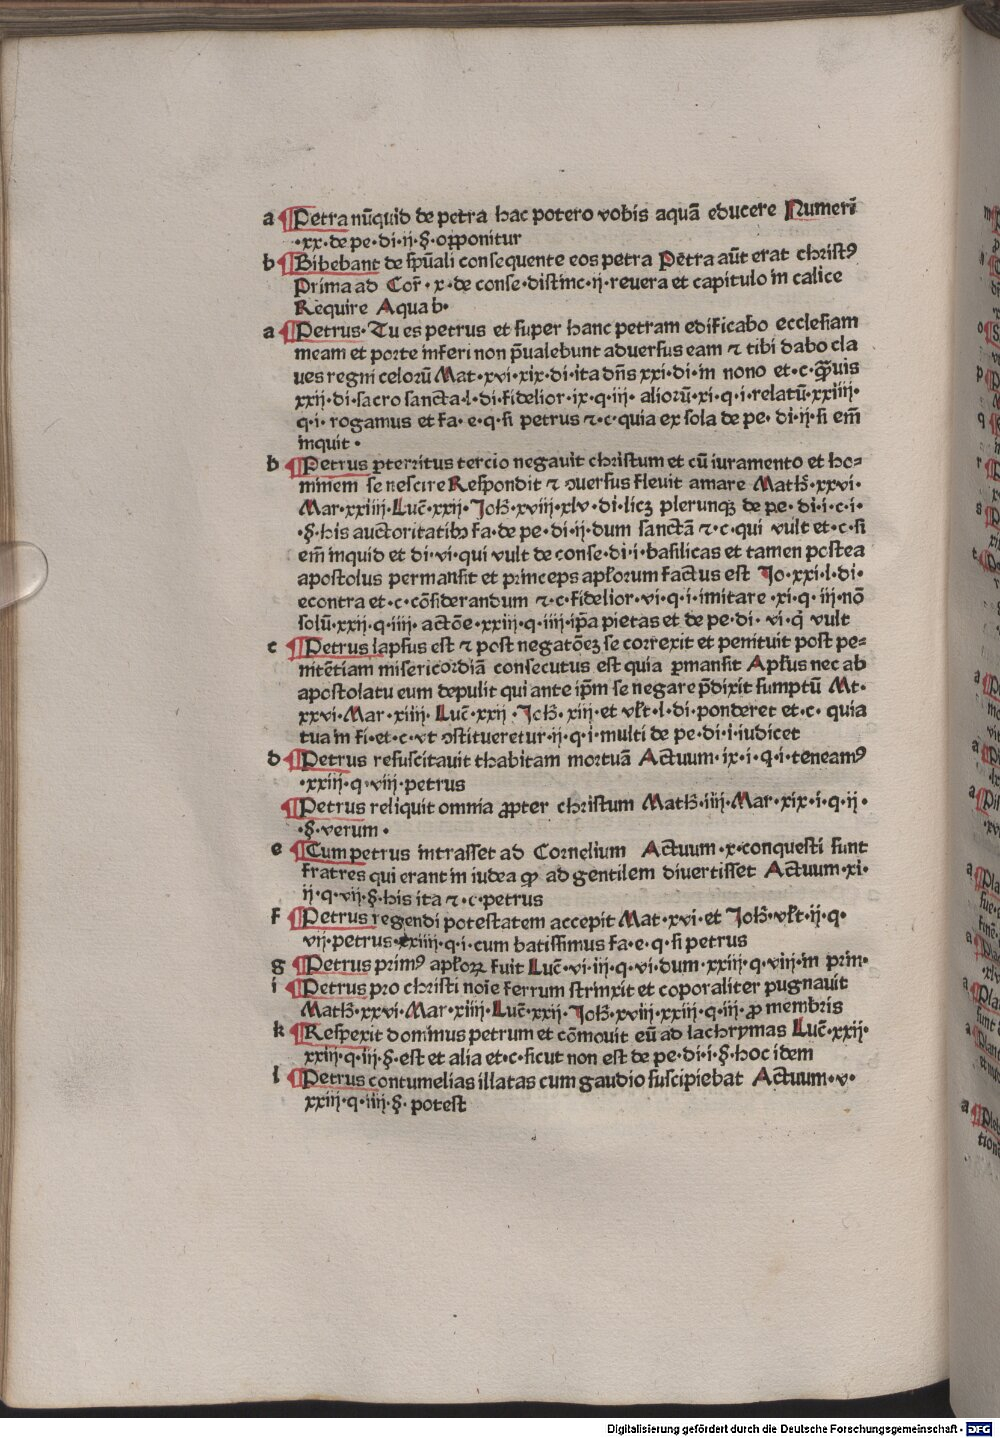 a ¶Petra nūquid de petra hac potero vobis aquā educere Numeri
·xx·de pe·di·ij·§·opponitur
b ¶Bibebant de spūali consequente eos petra Petra aūt erat christꝰ
Prima ad Cor̄·x·de conse·distinc·ij·revera et capitulo in calice
Require Aqua b·
a ¶Petrus·Tu es petrus et super hanc petram edificabo ecclesiam
meam et porte inferi non p̄ualebunt aduersus eam ⁊ tibi dabo cla
ues regni celorū Mat·xvi·xix·di·ita dn̄s xxi·di·in nono et·c·quāuis
xxij·di·sacro sancta·l·di·fidelior·ix·q·iij·aliorū·xi·q·i·relatū·xxiiij·
q·i·rogamus et fa·e·q·si petrus ⁊·c·quia ex sola de pe·di·ij·si em̄
inquit·
b ¶Petrus ꝑterritus tercio negauit christum et cū iuramento et ho-
minem se nescire Respondit ⁊ ꝯuersus fleuit amare Matħ·xxvi·
Mar·xxiiij·Luc̄·xxij·Joħ·xviij·xlv·di·licꝫ plerunqꝫ de pe·di·i·c·i·
·§·his auctoritatibꝫ fa·de pe·di·ij·dum sanctā ⁊·c·qui vult et·c·si
em̄ inquid et di·vi·qui vult de conse·di·i·basilicas et tamen postea
apostolus permansit et princeps apl̄orum factus est Jo·xxi·l·di·
econtra et·c·cōsiderandum ⁊·c·fidelior·vi·q·i·imitare·xi·q·iij·nō
solū·xxij·q·iiij·actōe·xxiij·q·iiij·ip̄a pietas et de pe·di·vi·q̄ vult
c ¶Petrus lapsus est ⁊ post negatōeꝫ se correxit et penituit post pe-
nitētiam misericordiā consecutus est quia ꝑmansit Apl̄us nec ab
apostolatu eum depulit qui ante ip̄m se negare p̄dixit sumptū Mt·
xxvi·Mar·xiiij·Luc̄·xxij·Joħ·xiij·et vl̄t·l·di·ponderet et·c·quia
tua in fi·et·c·vt ꝯstitueretur·ij·q·i·multi de pe·di·i·iudicet
d ¶Petrus resuscitauit thabitam mortuā Actuum·ix·i·q·i·teneamꝰ
·xxiij·q·viij·petrus
¶Petrus reliquit omnia ꝓpter christum Matħ·iiij·Mar·xix·i·q·ij·
·§·verum·
e ¶Cum petrus intrasset ad Cornelium Actuum·x·conquesti sunt
fratres qui erant in iudea ꝙ ad gentilem diuertisset Actuum·xi·
ij·q·vij·§·his ita ⁊·c·petrus
f ¶Petrus regendi potestatem accepit Mat·xvi·et Joħ·vl̄t·ij·q·
vij·petrus·xxiiij·q·i·cum batissimus fa·e·q·si petrus
g ¶Petrus primꝰ apl̄oꝝ fuit Luc̄·vi·iij·q·vi·dum·xxiij·q·viij·in prin·
i ¶Petrus pro christi noīe ferrum strinxit et coporaliter pugnauit
Matħ·xxvi·Mar·xiiij·Luc̄·xxij·Joħ·xviij·xxiij·q·iij·ꝓ membris
k ¶Respexit dominus petrum et cōmouit eū ad lachrymas Luc̄·xxij·
xxiij·q·iij·§·est et alia et·c·sicut non est de pe·di·i·§·hoc idem
l ¶Petrus contumelias illatas cum gaudio suscipiebat Actuum·v·
xxiij·q·iiij·§·potest
Digitalisierung gefördert durch die Deutsche Forschungsgemeinschaft - DFG